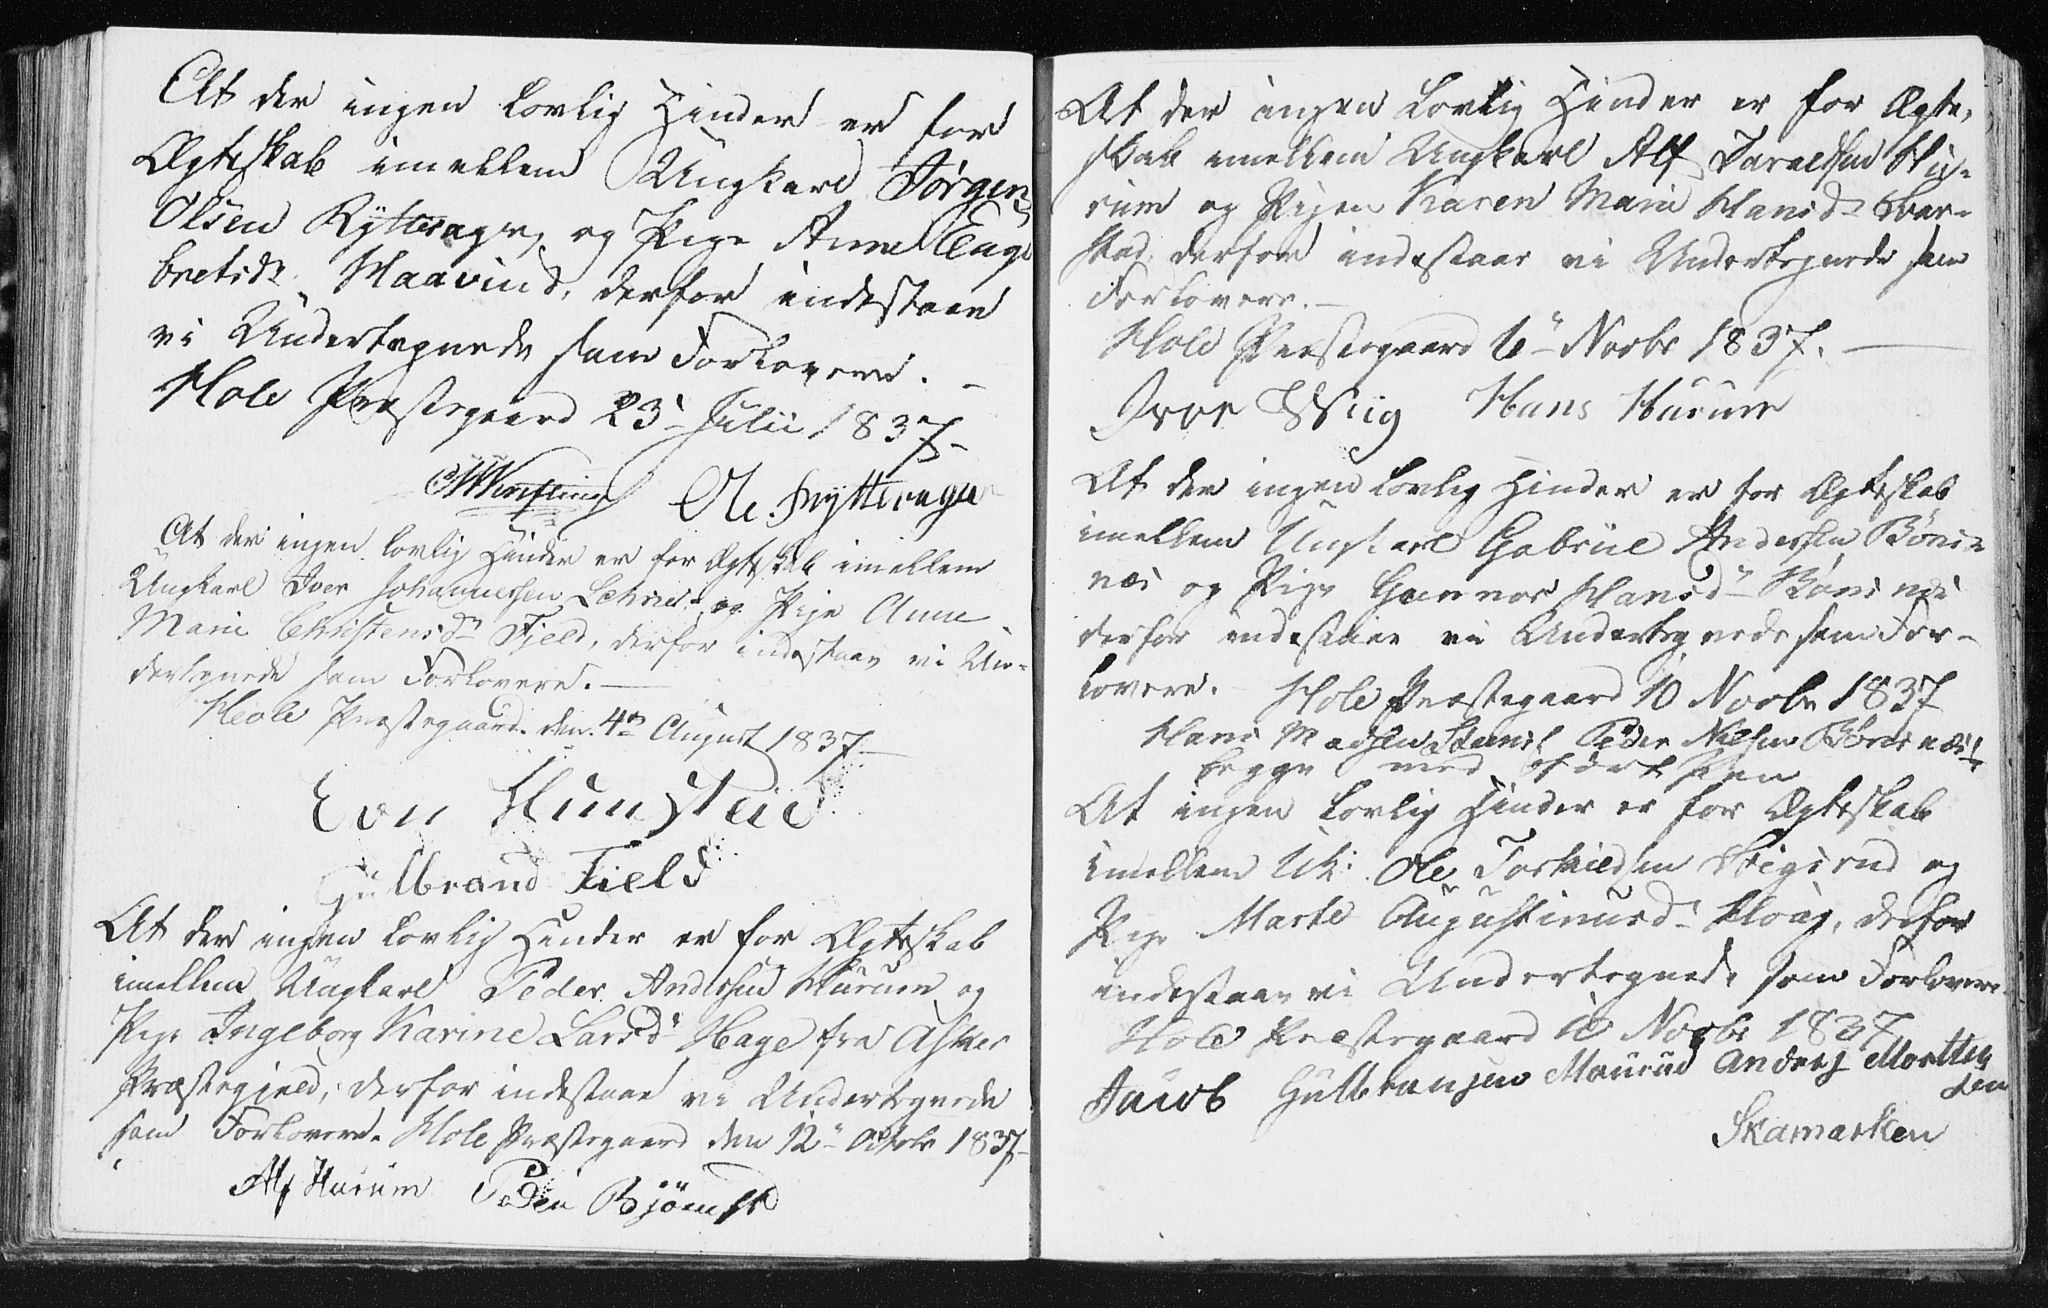 At der ingen lovlig Hinder er for
Ægteskab imellem Ungkarl Jørgen
Olsen Rytterager og Pige Anne Enge
bretsdr Haavind, derfor indestaaer
vi Undertegnede som Forlovere. -
Hole Præstegaard 23 Julii 1837 -
Ole Rytterager
At der ingen lovlig Hinder er for Ægteskab imellem
Ungkarl Iver Johannessen og Pige Anne
Marie Christensdr Fjeld, derfor indestaaer vi Un-
dertegnede som Forlovere. -
Hole Præstegaard den 4de August 1837 -
Even Hunstad
Gulbrand Field
At der ingen lovlig Hinder er for Ægteskab
imellem Ungkarl Peder Andersen Hurum og
Pige Ingeborg Karine Larsd Hage fra Asker
Præstegjeld, derfor indestaaer vi Undertegnede
som Forlovere. Hole Præstegaard den 12 Octobr 1837
Alf Hurum Peder Bjørnst
At der ingen lovlig Hinder er for Ægte-
skab imellem Ungkarl Alf Taraldsen Hu-
rum og Pigen Karen Marie Hansd
stad, derfor indestaaer vi Undertegnede som
Forlovere. -
Hole Præstegaard 6 Novbr 1837. -
Iver Wiig Hans Hurum
At der ingen lovlig Hinder er for Ægteskab
imellem Ungkarl Gabriel Andersen Bøns-
næs og Pige Gunnor Hansd Bønsnæs
derfor indestaaer vi Undertegnede som For-
lovere. - Hole Præstegaard 10 Novbr 1837
Hans Madsen Peder Nilsen Bønsnæs
begge med ført Pen
At ingen lovlig Hinder er for Ægteskab
imellem Uk: Ole Torkildsen og
Pige Marte Augustinusd, derfor
indestaaer vi Undertegnede som Forlovere
Hole Præstegaard Novbr 1837
Jacob Gulbransen Mourud Anders Mortten
sen
Skamarken